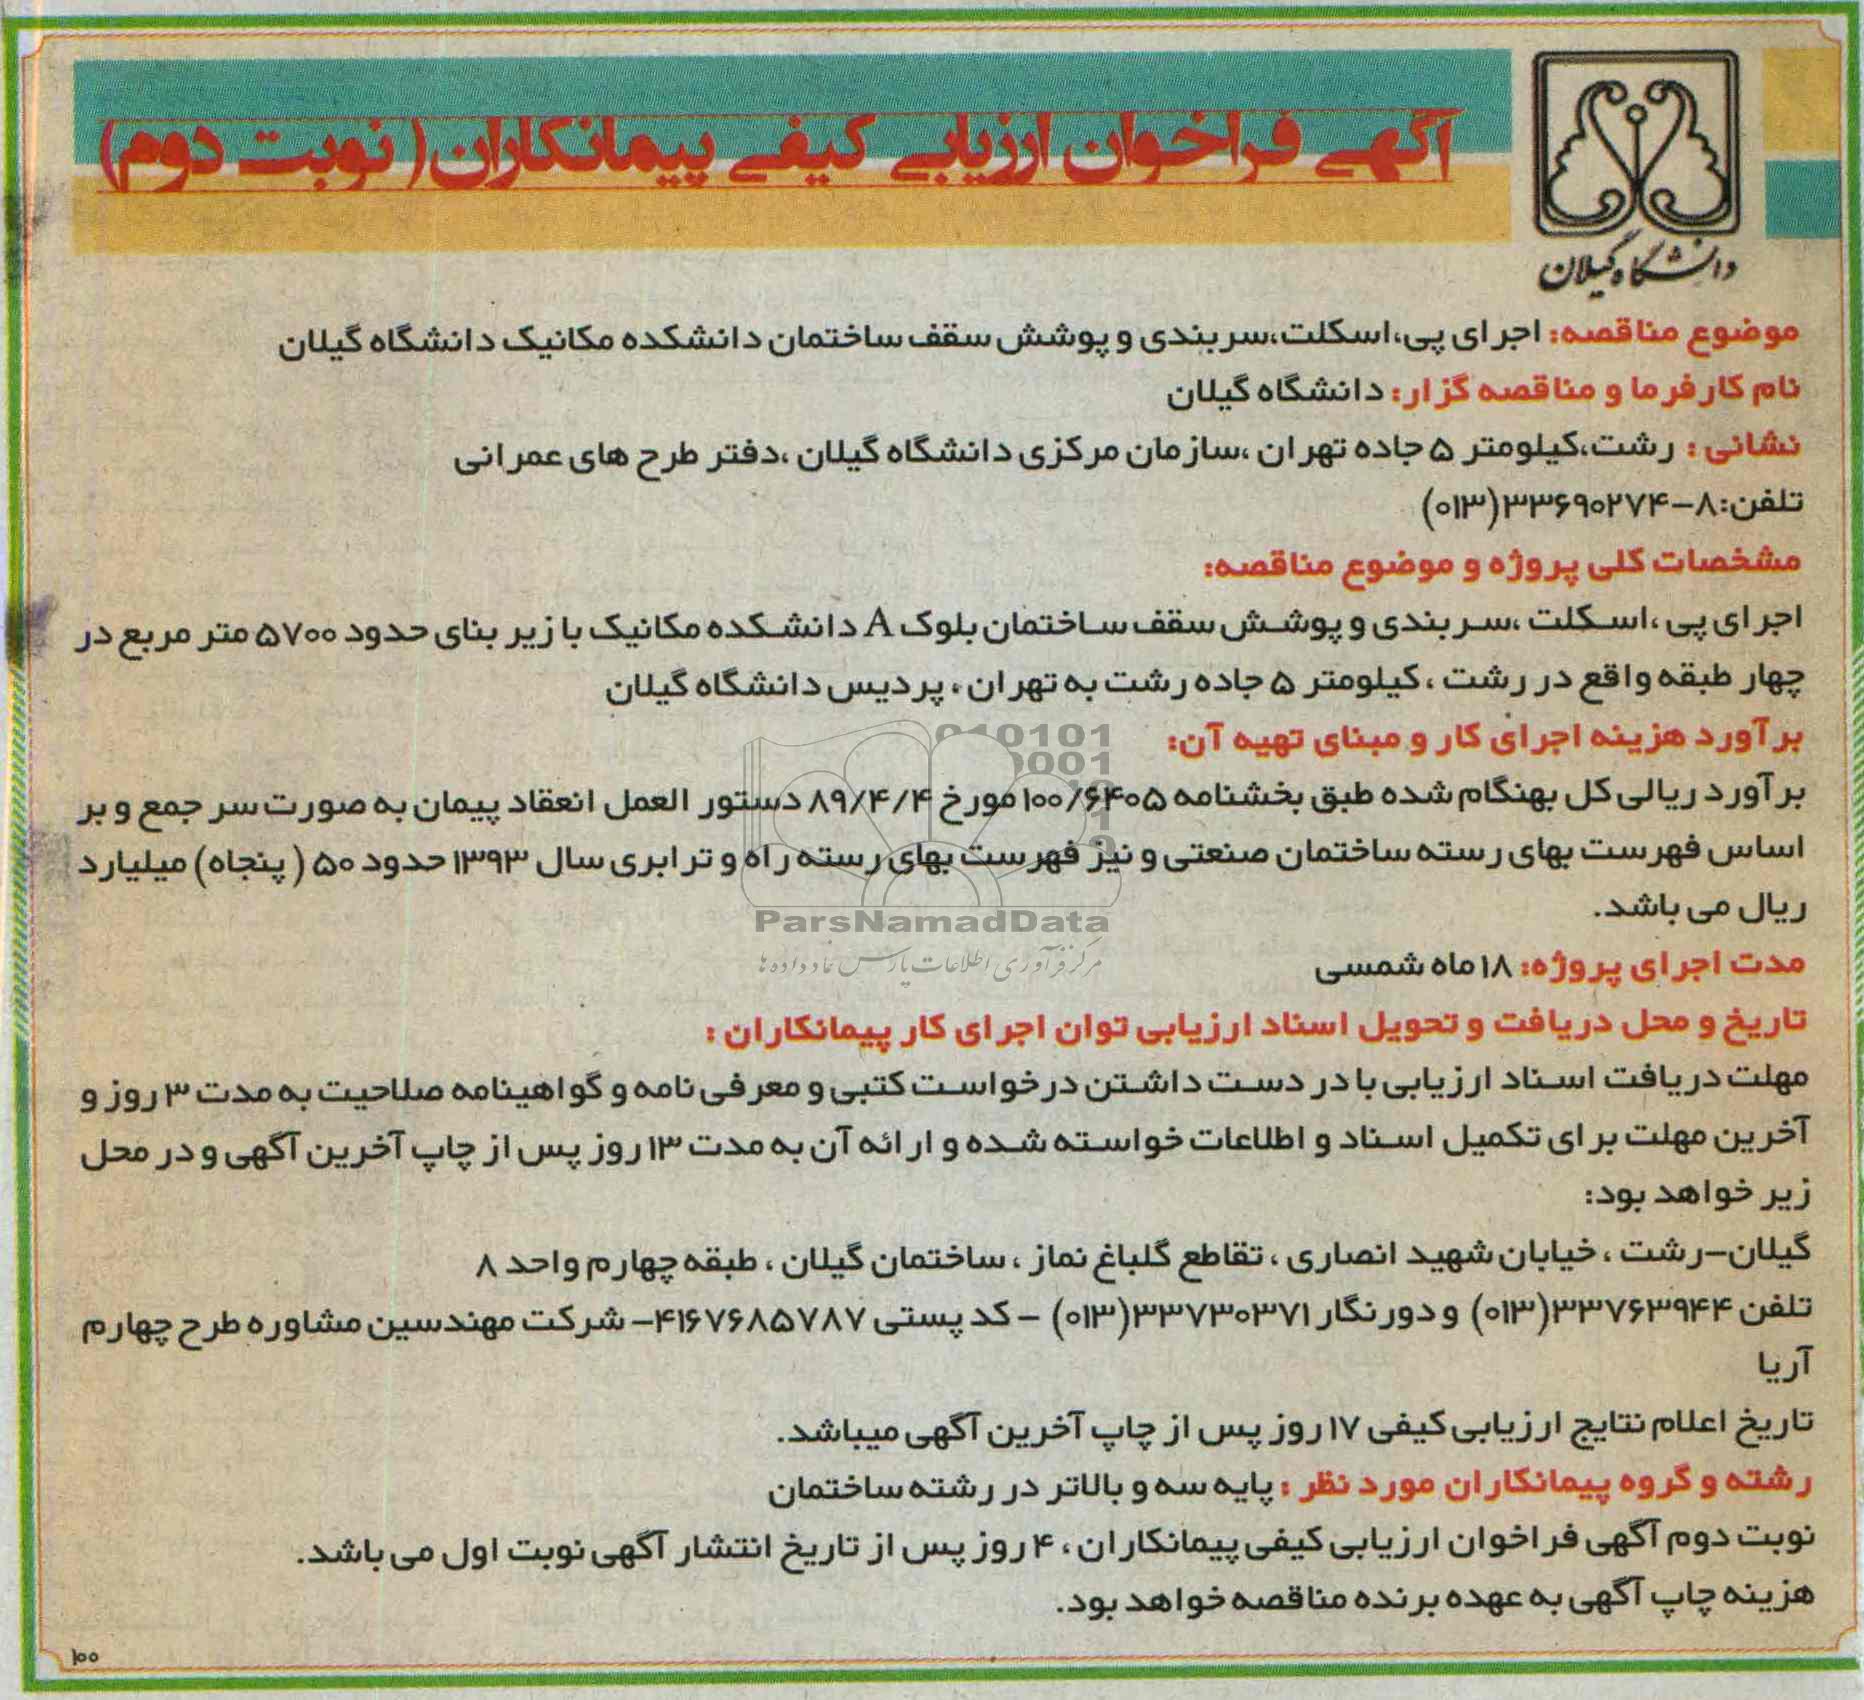 آگهی فراخوان ارزیابی کیفی پیمانکاران( نوبت دوم)
دانشگاه گیلان
موضوع مناقصه: اجرای پی،اسکلت،سربندی و پوشش سقف ساختمان دانشکده مکانیک دانشگاه گیلان
نام کارفرما و مناقصه گزار: دانشگاه گیلان
نشانی : رشت،کیلومتر ۵ جاده تهران ،سازمان مرکزی دانشگاه گیلان ،دفتر طرح های عمرانی
تلفن:۸-۳۳۶۹۰۲۷۴(۰۱۳)
مشخصات کلی پروژه و موضوع مناقصه:
اجرای پی ،اسکلت ،سربندی و پوشش سقف ساختمان بلوک A دانشکده مکانیک با زیر بنای حدود ۵۷۰۰ متر مربع در
چهار طبقه واقع در رشت ، کیلومتر ۵ جاده رشت به تهران ، پردیس دانشگاه گیلان
برآورد هزینه اجرای کار و مبنای تهیه آن:
برآورد ریالی کل بهنگام شده طبق بخشنامه ۱۰۰/۶۴۰۵ مورخ ۸۹/۴/۴ دستور العمل انعقاد پیمان به صورت سر جمع و بر
اساس فهرست بهای رسته ساختمان صنعتی و نیز فهرست بهای رسته راه و ترابری سال ۱۳۹۳ حدود ۵۰ ( پنجاه) میلیارد
ریال می باشد.
مدت اجرای پروژه: ۱۸ ماه شمسی
تاریخ و محل دریافت و تحویل اسناد ارزیابی توان اجرای کار پیمانکاران :
مهلت دریافت اسناد ارزیابی با در دست داشتن درخواست کتبی و معرفی نامه و گواهینامه صلاحیت به مدت ۳ روز و
آخرین مهلت برای تکمیل اسناد و اطلاعات خواسته شده و ارائه آن به مدت ۱۳ روز پس از چاپ آخرین آگهی و در محل
زیر خواهد بود:
گیلان-رشت ، خیابان شهید انصاری ، تقاطع گلباغ نماز ، ساختمان گیلان ، طبقه چهارم واحد ۸
تلفن ۳۳۷۶۳۹۴۴(۰۱۳) و دورنگار ۳۳۷۳۰۳۷۱(۰۱۳) - کد پستی ۴۱۶۷۶۸۵۷۸۷- شرکت مهندسین مشاوره طرح چهارم
آریا
تاریخ اعلام نتایج ارزیابی کیفی ۱۷ روز پس از چاپ آخرین آگهی میباشد.
رشته و گروه پیمانکاران مورد نظر : پایه سه و بالاتر در رشته ساختمان
نوبت دوم آگهی فراخوان ارزیابی کیفی پیمانکاران ، ۴ روز پس از تاریخ انتشار آگهی نوبت اول می باشد.
هزینه چاپ آگهی به عهده برنده مناقصه خواهد بود.
۱۰۰
ParsNamadData
مرکز فرآوری اطلاعات پارس نماد داده ها